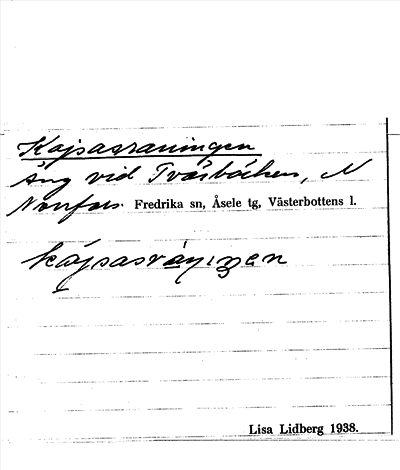 Kajsasraningen
Äng vid Tvärbäcken, N
Norrfors. Fredrika sn, Åsele tg, Västerbottens l.
Lisa Lidberg 1938.